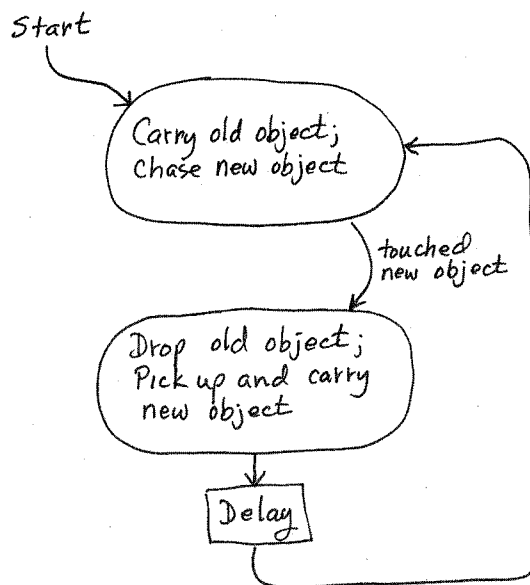 Start
Carry old object;
Chase new object
touched
new object
Drop old object;
Pick up and carry
new object
Delay